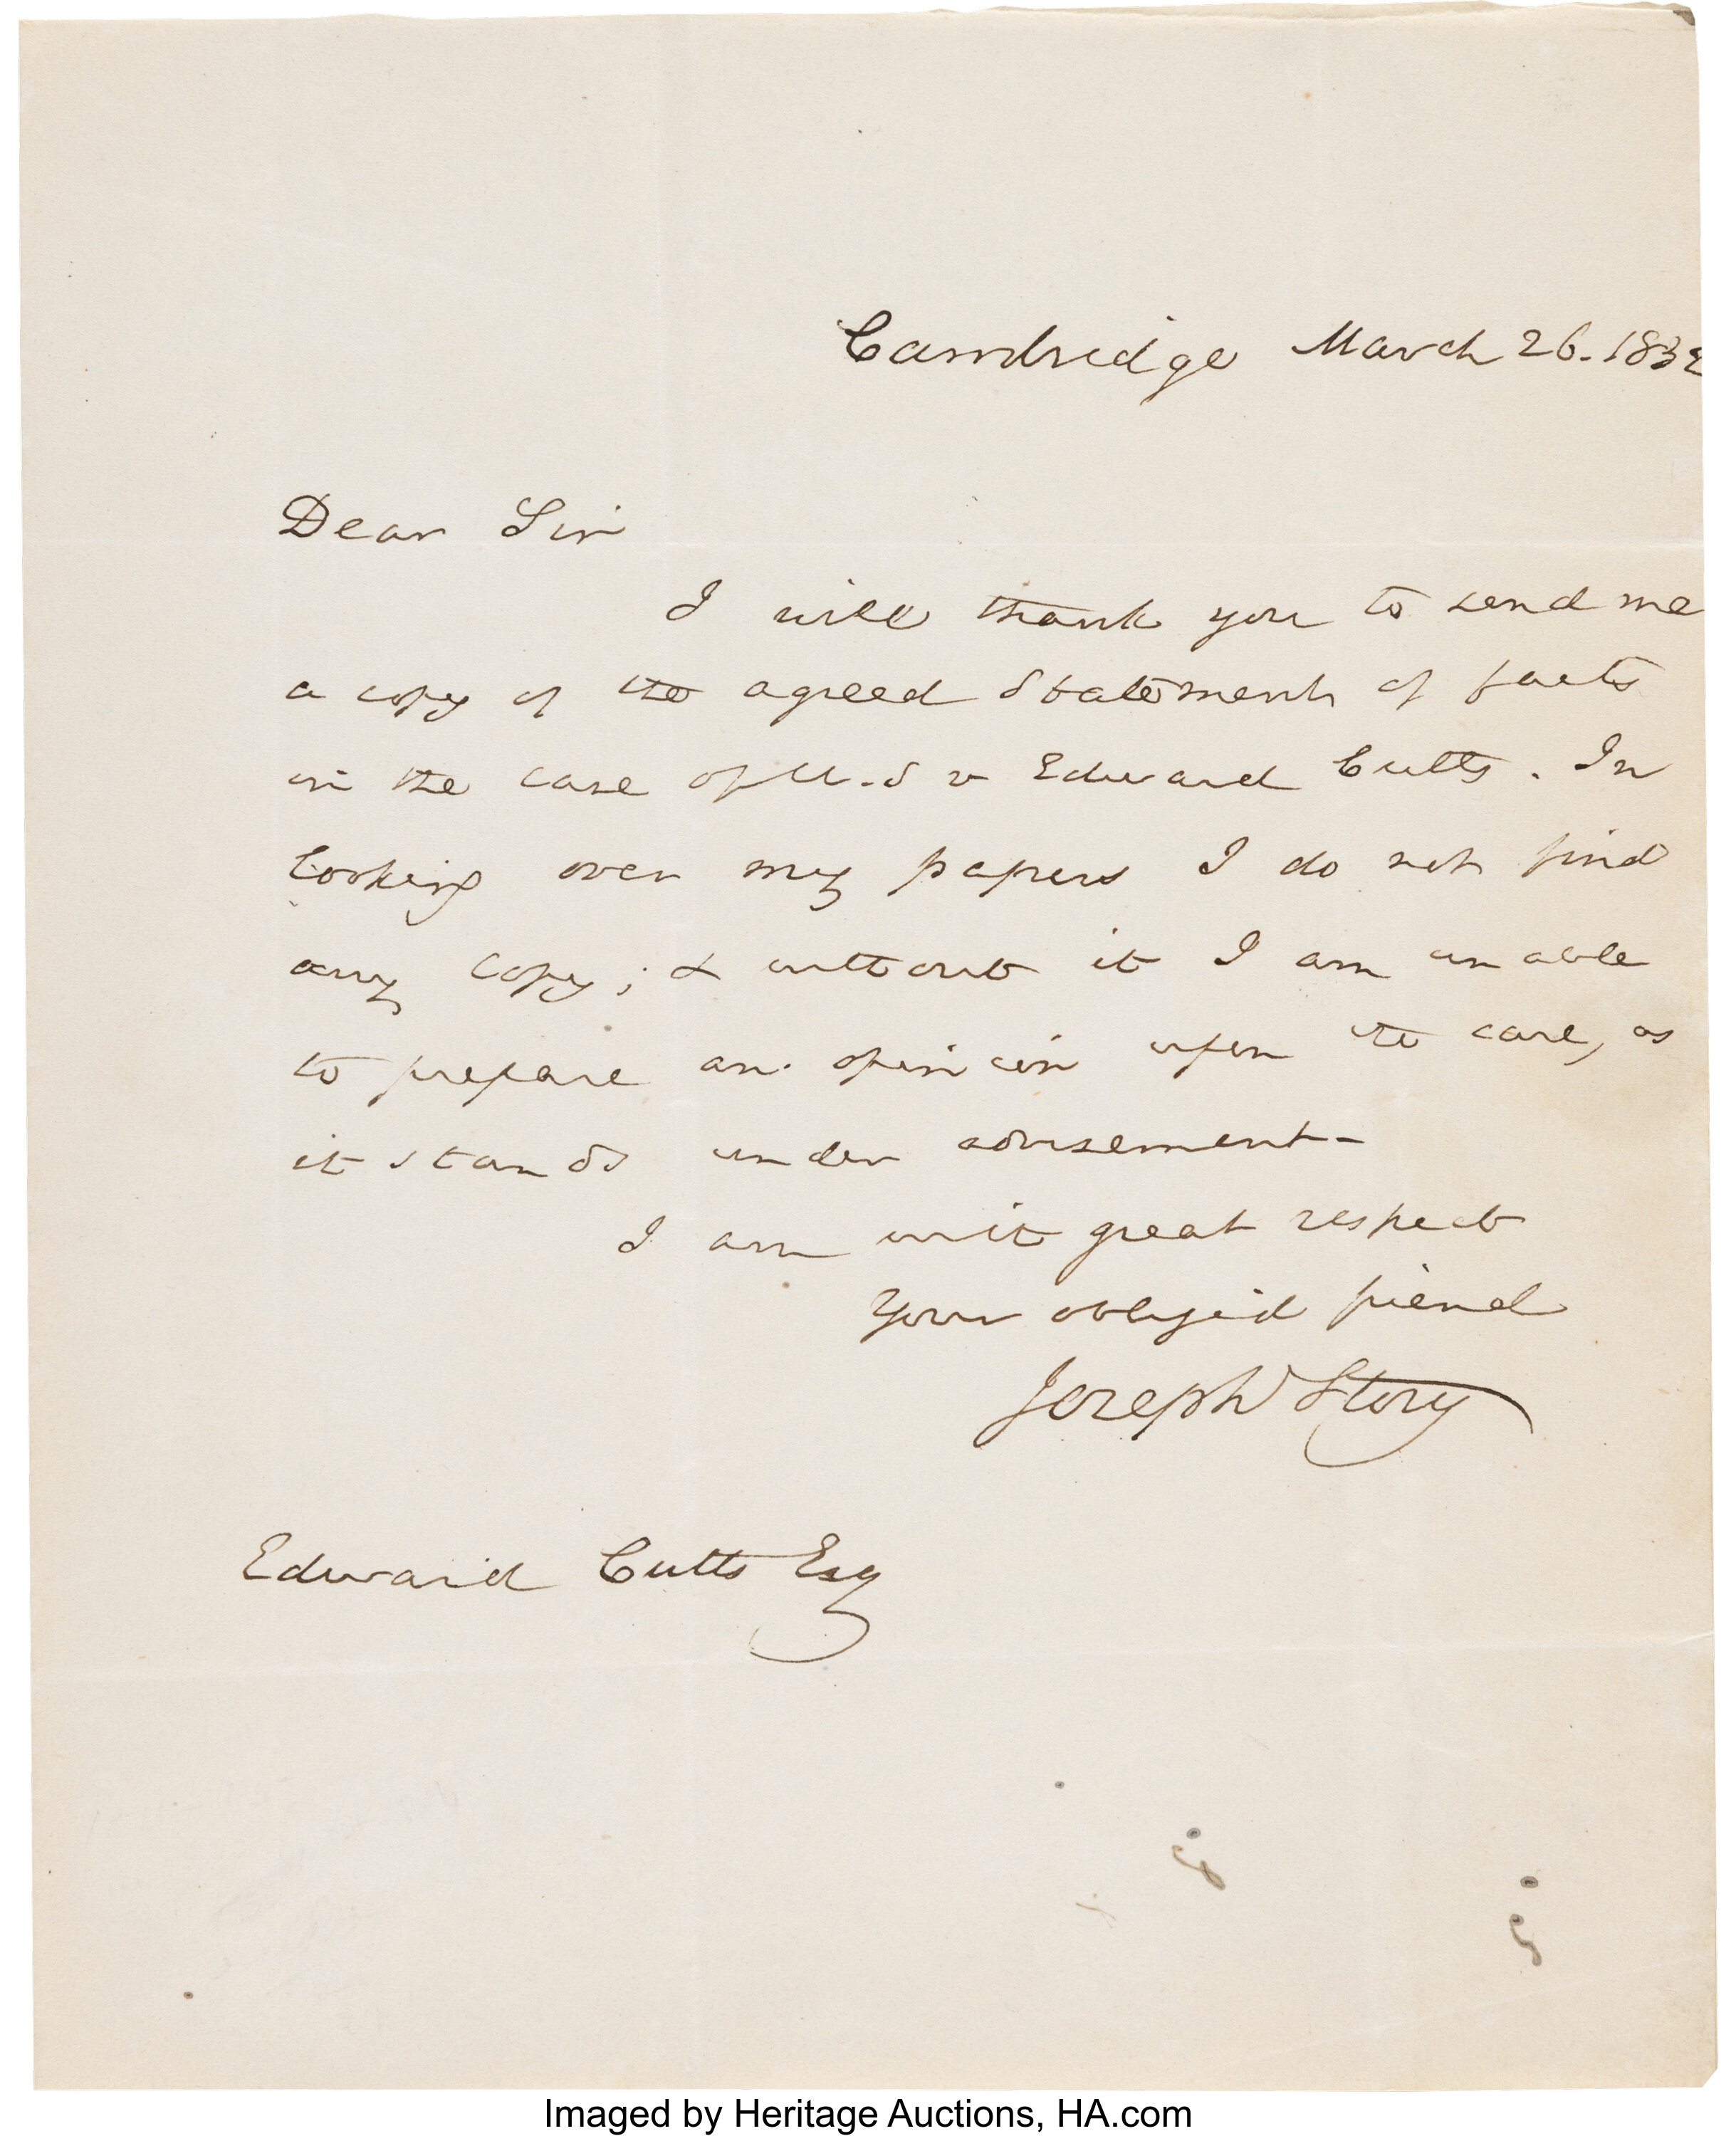 Cambridge March 26. 1832
Dear Sir
I will thank you to send me
a copy of the agreed Statement of facts
in the case of U.S v Edward Cutts. In
looking over my papers I do not find
any copy; & without it I am unable
to prepare an opinion upon the case, as
it stands under advisement-
I am with great respect
Your obliged friend
Joseph Story
Edward Cutts Esq
Imaged by Heritage Auctions, HA.com